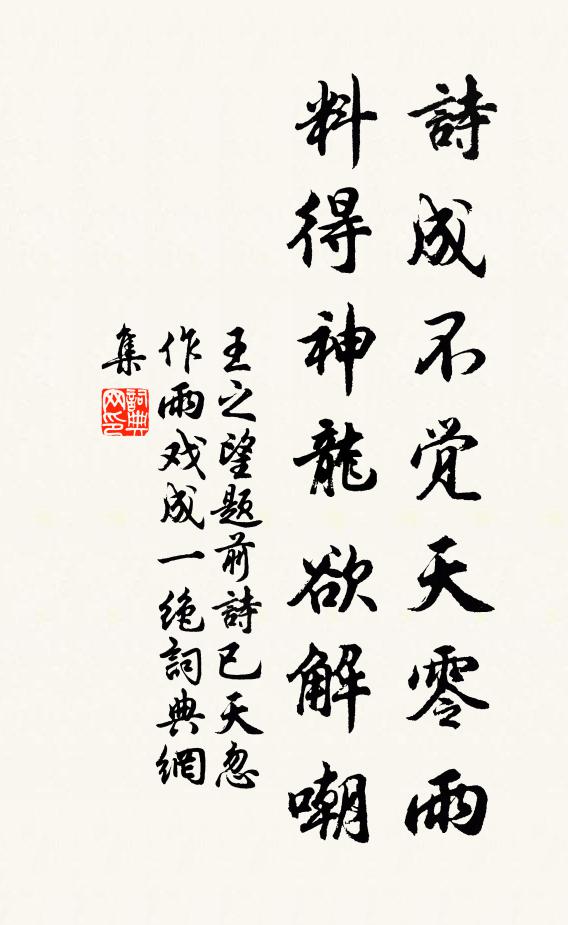 詩成不觉天零雨
料得神龍欲解嘲
王之望题前詩已天忽
作雨戏成一绝詞典網
集
詞典网印